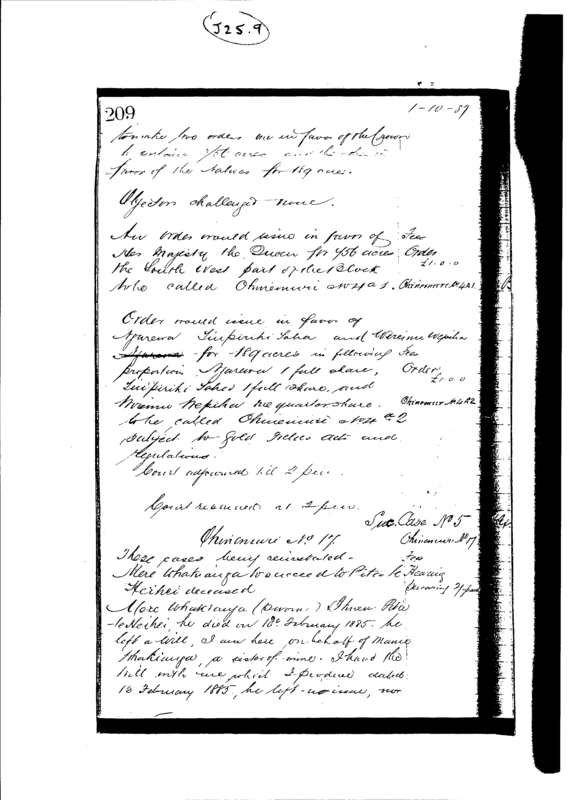 J25.9
209
1-10-89
to make two orders one in favor of the Crown
to contain 456 acres and the other in
favor of the Natives for 189 acres.
Objectors challenged none.
An order would issue in favor of
Her Majesty the Queen for 456 acres
Fee
Order
£1.0.0
the South West part of the Block
to be called Ohinemuri No 4 a 1.
Ohinemuri No 4A1
Order would issue in favor of
Ngarewa Tiripiriki and
for 189 acres in following
Fee
proportion Ngarewa 1 full share,
Order
£1.0.0
1 full share, and
one quarter share.
Ohinemuri No 4A2
to be called Ohinemuri No 4 a 2
subject to Gold Fields Acts and
regulations.
Court adjourned till 2 p.m.
Court resumed at 2 p.m.
Suc. Case No 5
Ohinemuri No 17.
Ohinemuri No 17
These cases being reinstated -
Fee
Mere Whakianga to succeed to Pita te
Hearing
Heihei deceased
Mere Whakianga (Sworn) I knew Pita
te Heihei he died on 18th February 1885. he
left a Will, I am here on behalf of
Whakianga, a sister of mine. I have the
Will with me which I produce dated
13 February 1885, he left no issue, nor